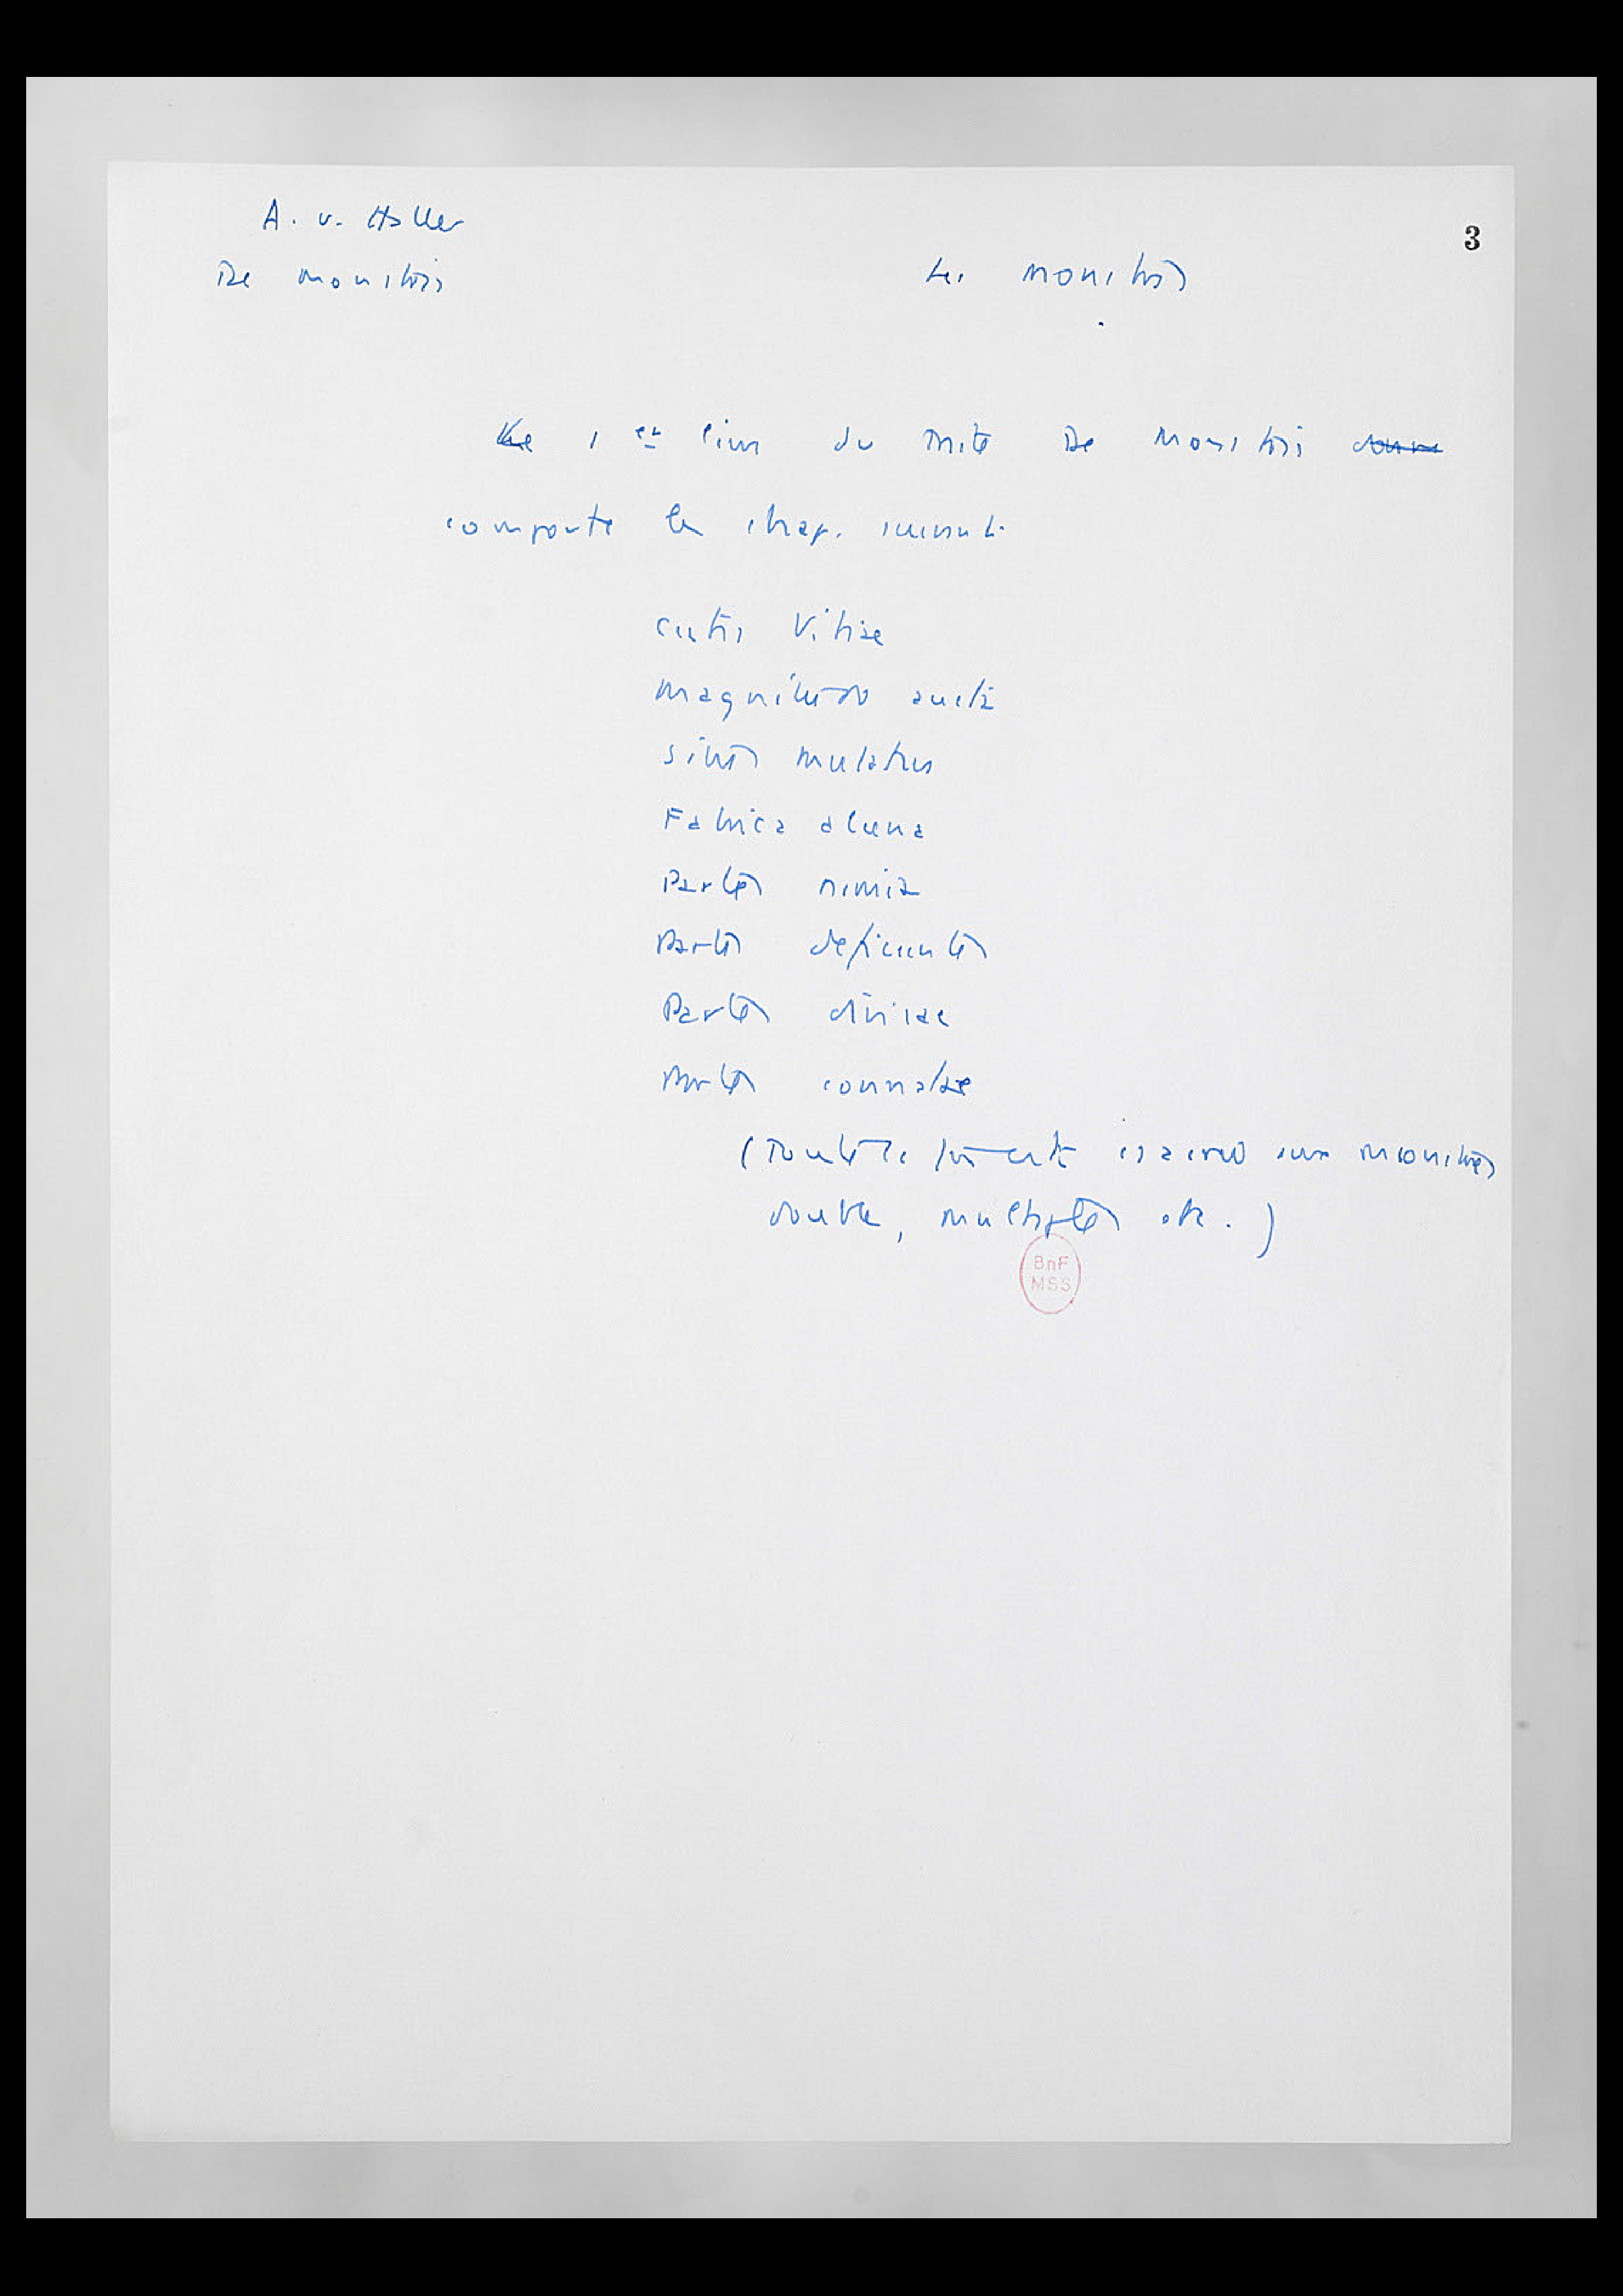 A. v. Haller
De monstris
Les monstres
3
Le 1er livre du traité De Monstris donne
comporte les chap. suivants
cutis vitiae
magnitudo aucta
situs mutatus
Fabrica aliena
Partes nimia
Partes deficientes
Partes divisae
Partes connatae
(Toute la suite est consacrée aux monstres
double, multiples etc.)
BnF
MSS